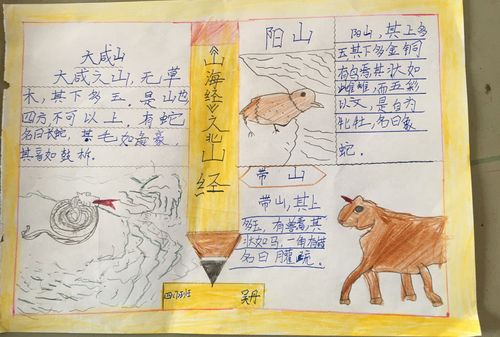 大咸山
大咸之山，无草
木，其下多玉。是山也
四方不可以上。有蛇
名曰长蛇，其毛如彘豪，
其音如鼓柝。
《山海经》之北山经
阳山
阳山，其上多
玉其下多金铜
有鸟焉其状如
雌雉，而五彩
以文，是自为
牝牡，名曰象
蛇.
带山
带山，其上
多玉，有兽焉，其
状如马，一角有错
名曰䑏疏.
吴丹